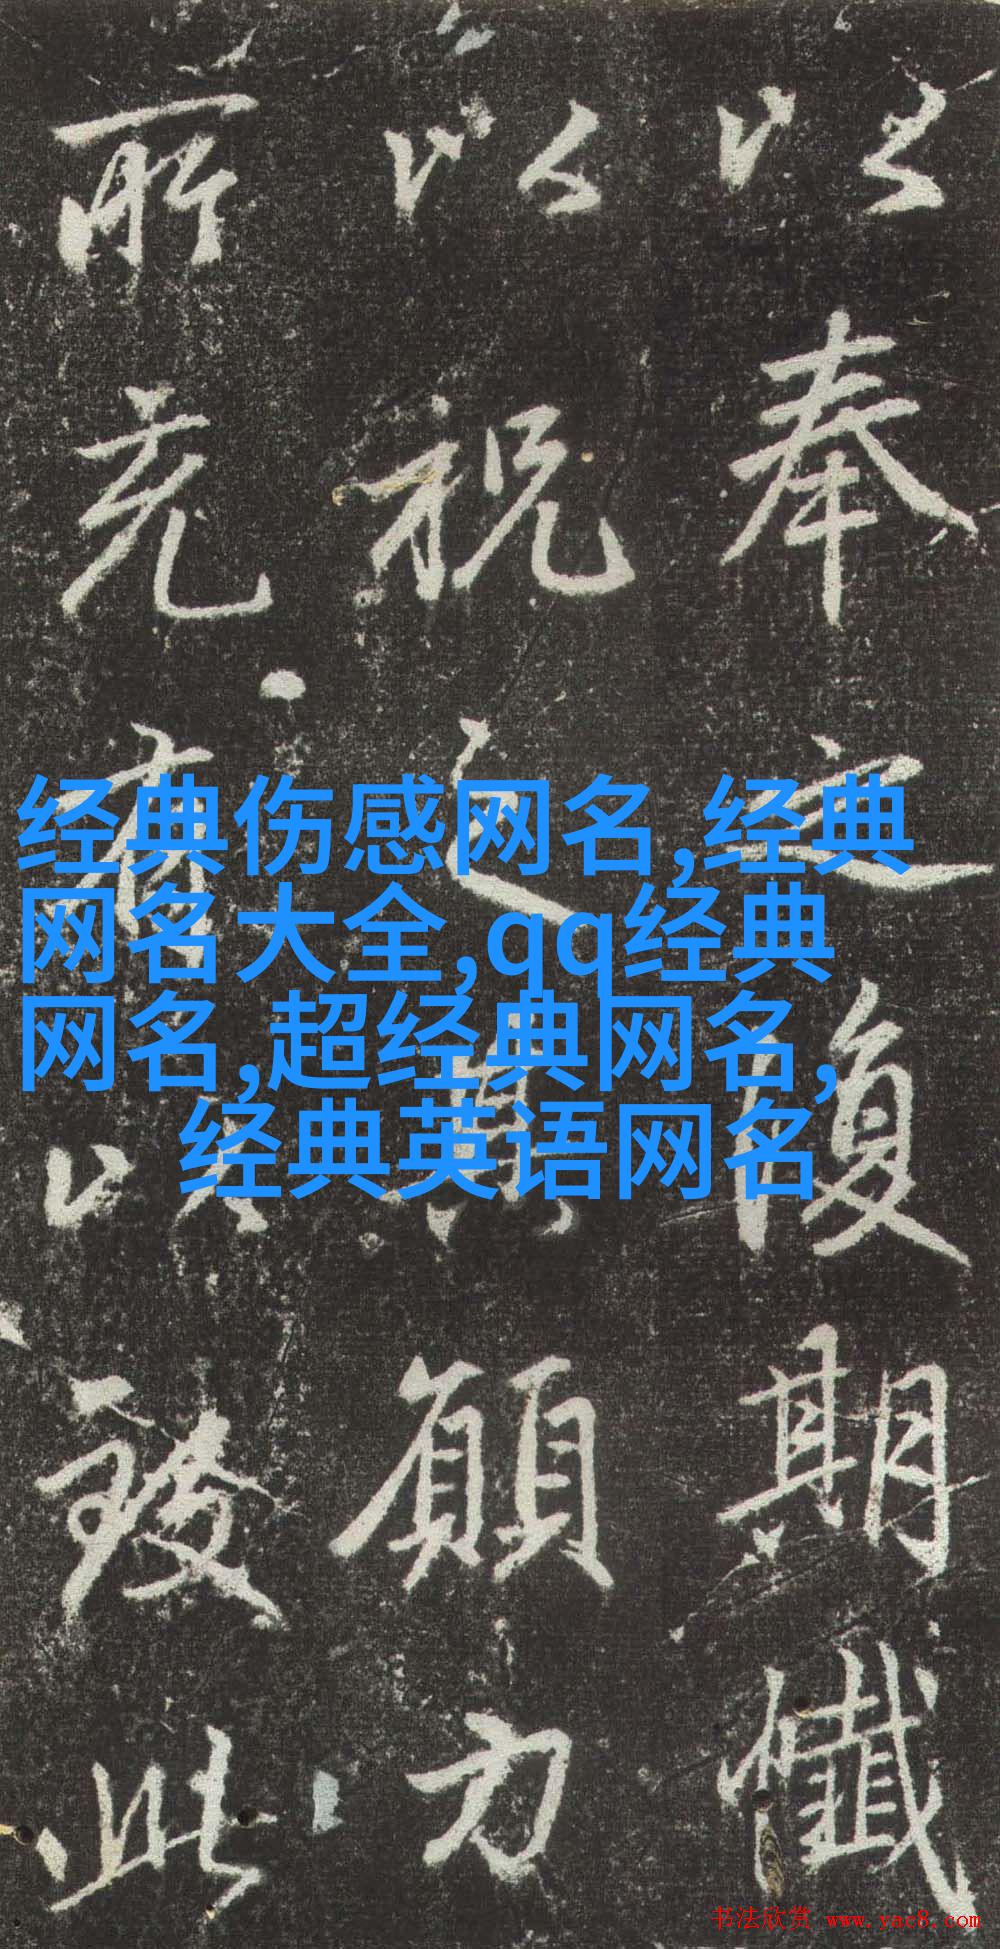 以奉之復期懺
以祝之具願力
所充者以致此
经典伤感网名,经典
网名大全,qq经典
网名,超经典网名,
经典英语网名
书法欣赏 www.yac8.com